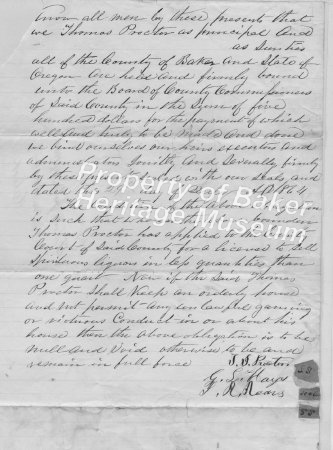 Know all men by these presents that
we Thomas Proctor as principal and
as Sureties
all of the County of Baker and State of
Oregon are held and firmly bound
unto the Board of County Commissioners
of Said County in the Sum of five
hundred dollars for the payment of which
well and truly to be made and done
we bind ourselves our heirs executors and
administrators jointly and Severally firmly
by these with our Seals and
dated this 1864
The of the above
is Such that bounden
Thomas Proctor has applied to the
Court of Said County for a license to Sell
Spirituous liquors in less quantities than
one quart Now if the Said Thomas
Proctor Shall Keep an orderly house
and not permit any unlawful gaming
or riotous Conduct in or about his
house then the above obligation is to be
null and Void otherwise to be and
remain in full force
Property of Baker
Heritage Museum